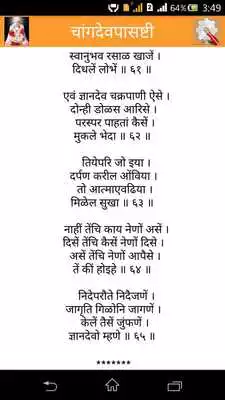 64% 3:49
चांगदेवपासष्टी
स्वानुभव रसाळ खाजें ।
दिधलें लोभें ॥ ६१ ॥
एवं ज्ञानदेव चक्रपाणी ऐसे ।
दोन्ही डोळस आरिसे ।
परस्पर पाहतां कैसें ।
मुकले भेदा ॥ ६२ ॥
तियेपरि जो इया ।
दर्पण करील ओंविया ।
तो आत्माएवढिया ।
मिळेल सुखा ॥ ६३ ॥
नाहीं तेंचि काय नेणों असें ।
दिसें तेंचि कैसें नेणों दिसे ।
असें तेंचि नेणों आपैसे ।
तें कीं होइहे ॥ ६४ ॥
निदेपरौते निदैजणें ।
जागृति गिळोनि जागणें ।
केलें तैसें जुंफणें ।
ज्ञानदेवो म्हणे ॥ ६५ ॥
*******